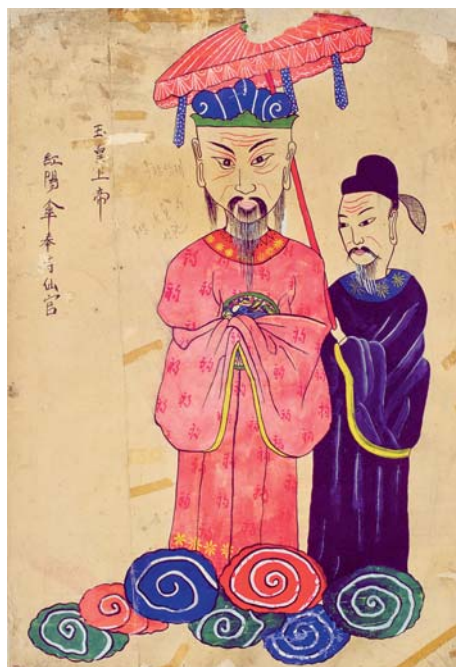 玉皇上帝
紅陽傘奉侍仙官